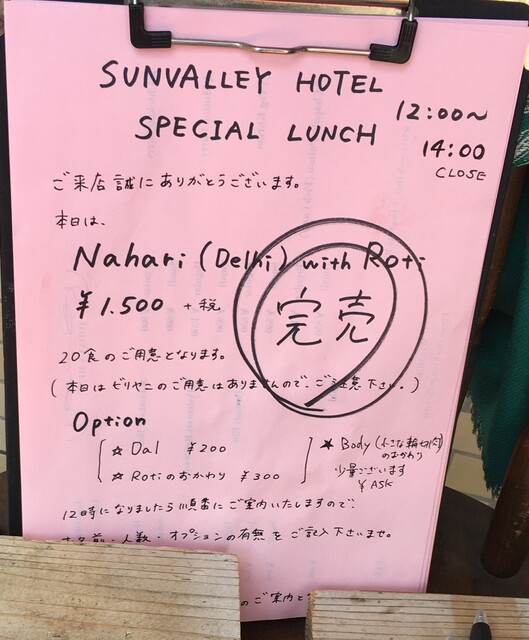 SUNVALLEY HOTEL
SPECIAL LUNCH
12:00〜
14:00
CLOSE
ご来店誠にありがとうございます。
本日は、
Nahari (Delhi) with Roti
¥1.500 +税
完売
20食のご用意となります。
(本日はビリヤニのご用意はありませんので、ご注意下さい。)
Option
☆ Dal ¥200
☆ Rotiのおかわり ¥300
★ Body (小さな輪切肉)
のおかわり
少量ございます
¥ ASK
12時になりましたら順番にご案内いたしますので、
お名前・人数・オプションの有無をご記入下さいませ。
のご案内と